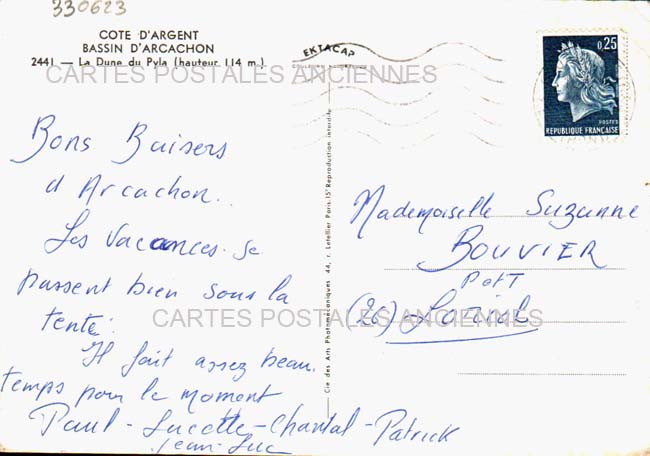 330623
COTE D'ARGENT
BASSIN D'ARCACHON
2441 — La Dune du Pyla (hauteur 114 m.)
EKTACAP
CARTES POSTALES ANCIENNES
0,25
POSTES
REPUBLIQUE FRANÇAISE
Bons Baisers
d Arcachon..
Les vacances se
passent bien sous la
tente.
Il fait assez beau
temps pour le moment
Paul - Lucette - Chantal - Patrick
Jean-Luc
Cie des Arts Photomécaniques 44, r. Letellier Paris-15e Reproduction interdite
Mademoiselle Suzanne
BOUVIER
PetT
(26) Loriol
CARTES POSTALES ANCIENNES